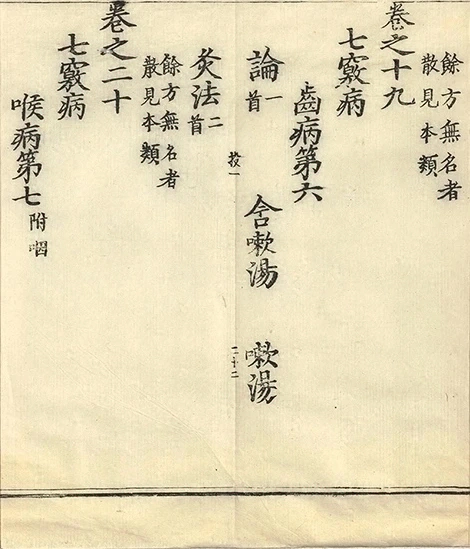 餘方無名者
散見本類
卷之十九
七竅病
齒病第六
論一首 含嗽湯 嗽湯
灸法二首
餘方無名者
散見本類
卷之二十
七竅病
喉病第七附咽